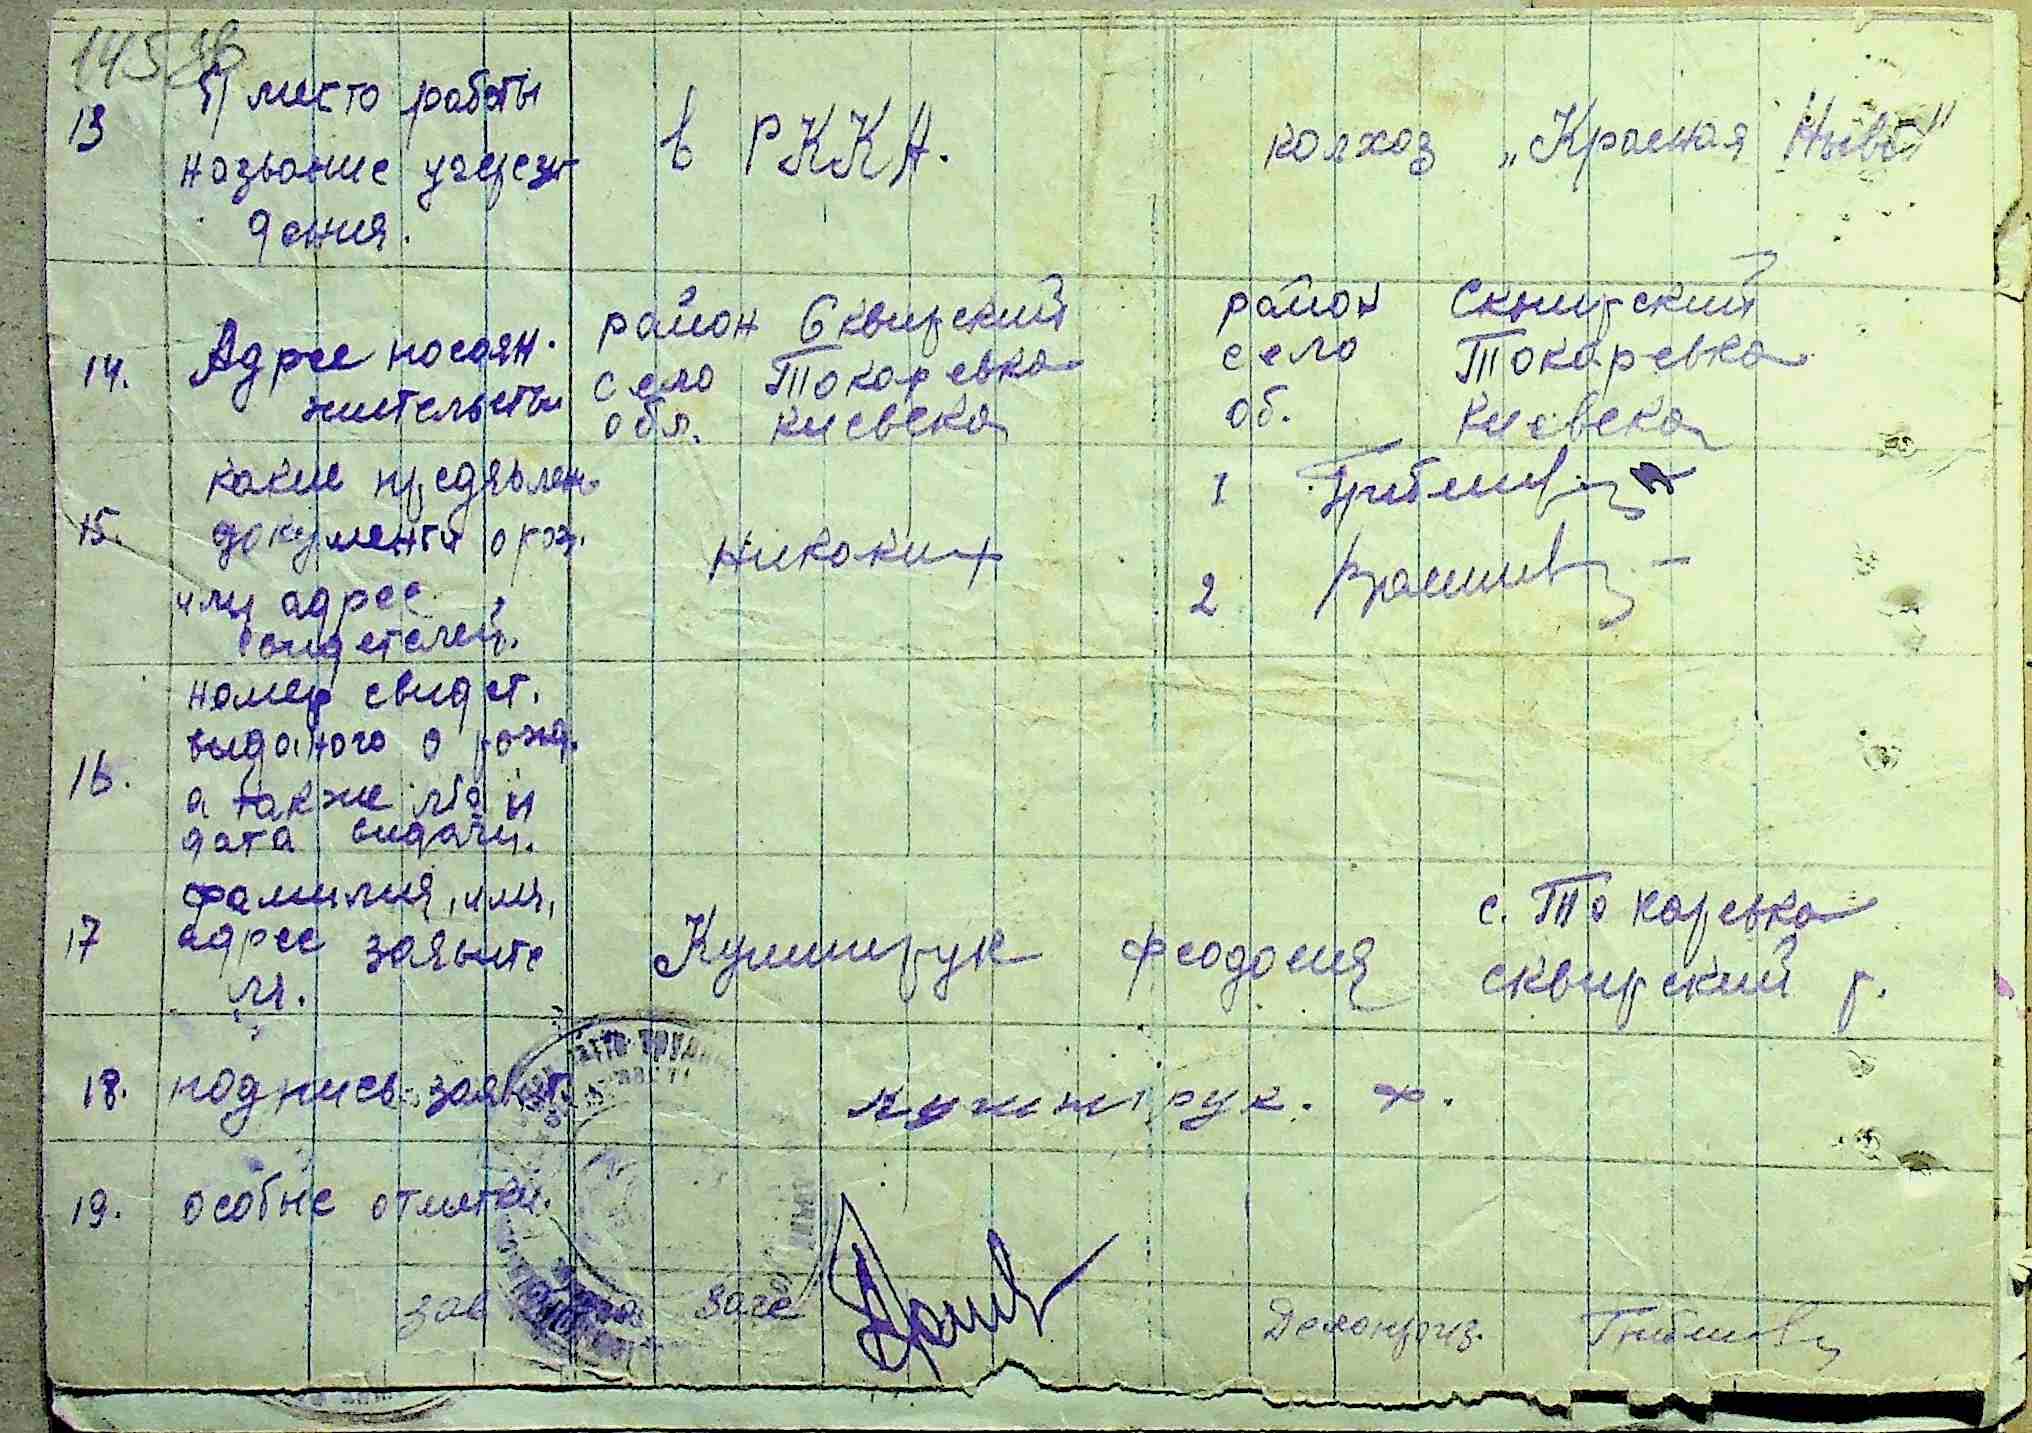 145
13
б) место работы
название учереж
дения.
в РККА.
колхоз „Красная Ныва"
14.
Адрес посоян.
жительства
район Сквирский
село Токаревка
обл. Киевска
район Сквирский
село Токаревка
об. Киевска
15.
какие предявлен
документи о рож.
или адрес
свидетелей.
никаких
1
2
16.
номер свидет.
выданого о рожд.
а также
дата видачи.
17
фамилия, имя,
адрес заявите
ля.
Кушнирук Феодосия
с. Токаревка
сквирский р.
18. подпись заявит.
кушнірук. Ф.
19. особые отметки.
зав
загс
Делопроиз.